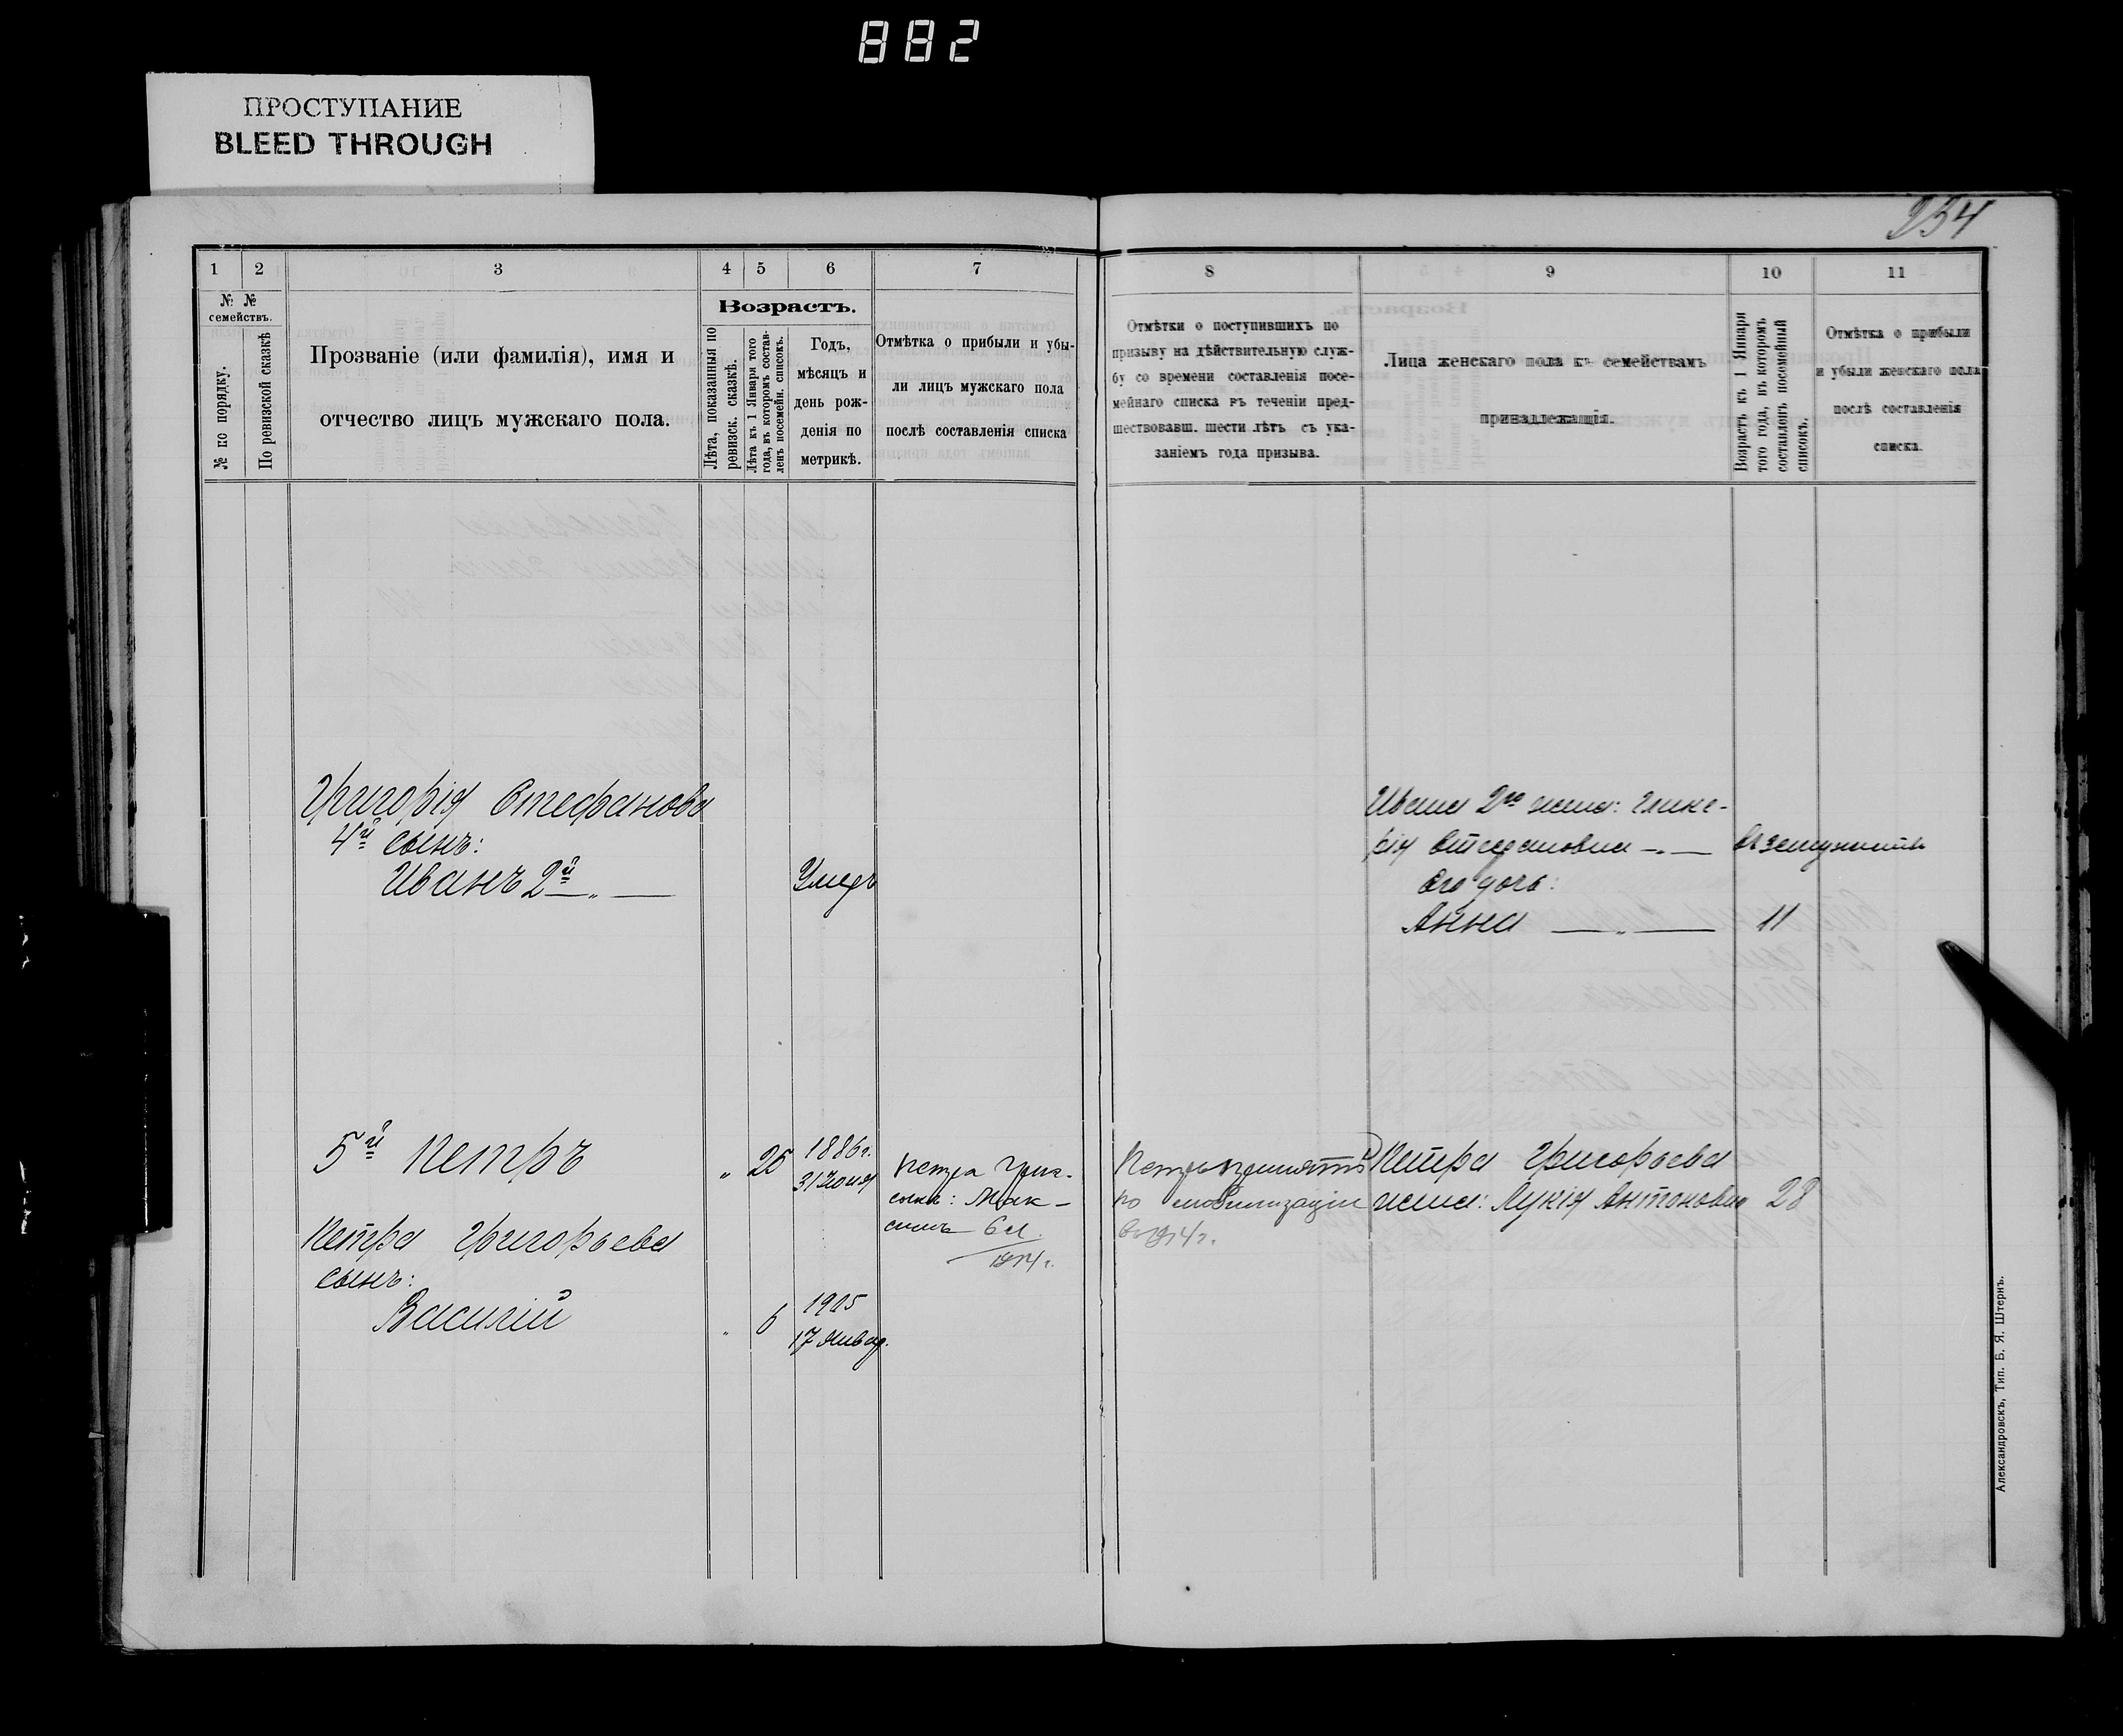 882
ПРОСТУПАНИЕ
BLEED THROUGH
234
1 2 3 4 5 6 7
№ № семействъ.
№ по порядку.
По ревизской сказкѣ
Прозваніе (или фамилія), имя и
отчество лицъ мужскаго пола.
Возрастъ.
Лѣта, показанныя по
ревизск. сказкѣ.
Лѣта къ 1 Января того
года, въ которомъ состав-
ленъ посемейн. списокъ.
Годъ,
мѣсяцъ и
день рож-
денія по
метрикѣ.
Отмѣтка о прибыли и убы-
ли лицъ мужскаго пола
послѣ составленія списка
8 9 10 11
Отмѣтки о поступившихъ по
призыву на дѣйствительную служ-
бу со времени составленія посе-
мейнаго списка въ теченіи пред-
шествовавш. шести лѣтъ съ ука-
заніемъ года призыва.
Лица женскаго пола къ семействамъ
принадлежащія.
Возрастъ къ 1 Января
того года, въ которомъ
составленъ посемейный
списокъ.
Отмѣтка о прибыли
и убыли женскаго пола
послѣ составленія
списка.
Григорія Стефанова
4й сынъ:
Иванъ 2й — „ — Умеръ
5й Петръ „ 25 1886 г.
31 Іюня
Петра Григорьева
сынъ:
Василій „ 6 1905
17 Январ.
Петра Григ.
сынъ: Мак-
симъ 6 м.
1914 г.
Петръ принятъ
по мобилизаціи
въ 1914 г.
Ивана 2го жена: Глике-
рія Стефановна — „ — въ замужествѣ
Его дочь:
Анна — „ — 11
Петра Григорьева
жена: Лукія Антоновна 28
Александровскъ, Тип. Б. Я. Штернъ.